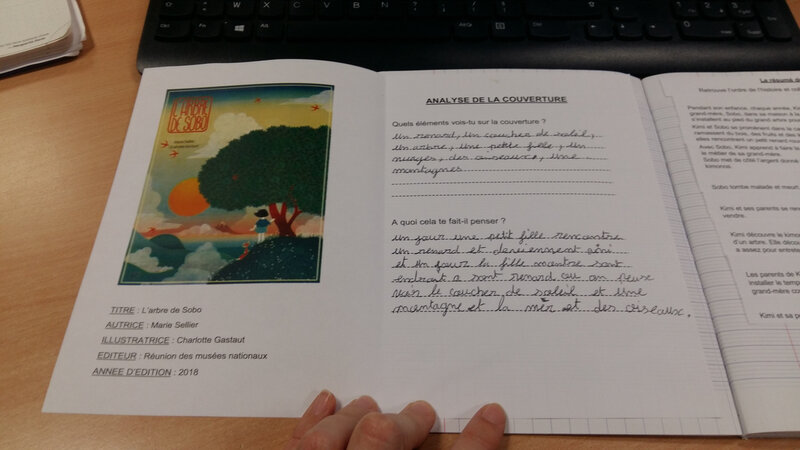 L'ARBRE
DE SOBO
Marie Sellier
TITRE : L'arbre de Sobo
AUTRICE : Marie Sellier
ILLUSTRATRICE : Charlotte Gastaut
EDITEUR : Réunion des musées nationaux
ANNEE D'EDITION : 2018
ANALYSE DE LA COUVERTURE
Quels éléments vois-tu sur la couverture ?
un renard, un coucher de soleil,
un arbre, une petite fille, un
nuages, des oiseaux, une
montagnes
A quoi cela te fait-il penser ?
un jour une petit fille rencontre
un renard et deviennent ami
et un jour la fille montre sont
endroit a sont renard ou on peux
voir le coucher de soleil et une
montagne et la mer et des oiseaux.
Le résumé d
Retrouve l'ordre de l'histoire et col
Pendant son enfance, chaque année, Ki
grand-mère, Sobo, dans sa maison à la
s'installent au pied du grand arbre pour
Kimi et Sobo se promènent dans la ca
ramassent du bois, des fruits et des
elles rencontrent un petit renard roux
Avec Sobo, Kimi apprend à faire le
le métier de sa grand-mère.
Sobo met de côté l'argent donné
kimonos.
Sobo tombe malade et meurt
Kimi et ses parents se ren
vendre.
Kimi découvre le kimo
d'un arbre. Elle déco
a assez pour entrete
Les parents de K
installer le temp
grand-mère cou
Kimi et sa pe